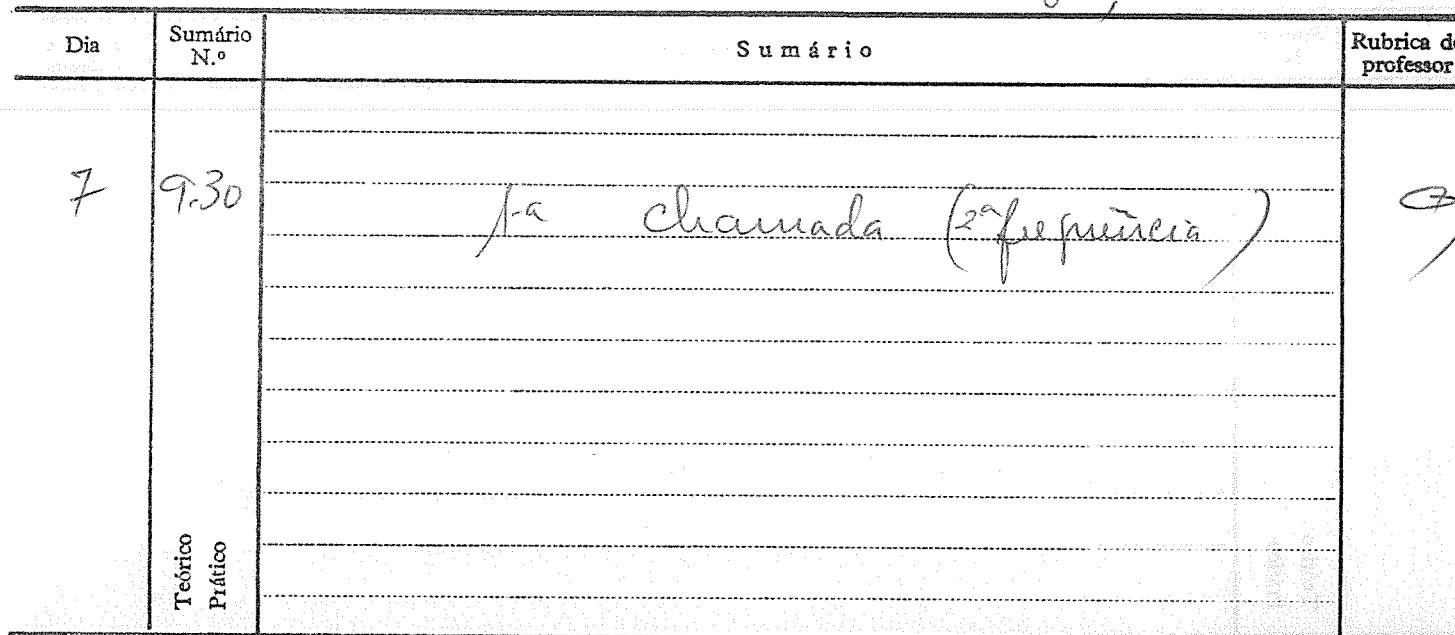 Dia
Sumário N.º
Sumário
Rubrica do professor
7
9.30
1.a chamada (2ª frequência)
Teórico
Prático